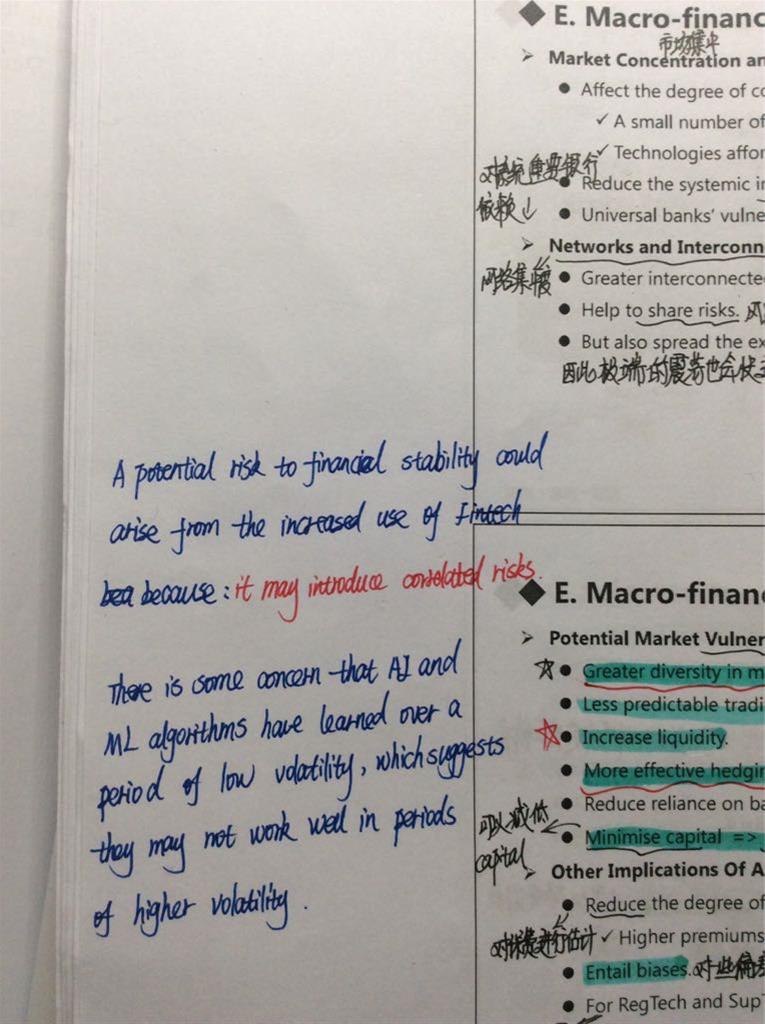 ◆ E. Macro-financ
市场集中
➢ Market Concentration an
● Affect the degree of co
✓ A small number of
✓ Technologies affor
对系统重要银行
● Reduce the systemic in
依赖↓
● Universal banks' vulne
➢ Networks and Interconn
网络集中度
● Greater interconnecte
● Help to share risks.
● But also spread the ex
因此极端的震荡也会
A potential risk to financial stability could
arise from the increased use of Fintech
because: it may introduce correlated risks.
There is some concern that AI and
ML algorithms have learned over a
period of low volatility, which suggests
they may not work well in periods
of higher volatility.
◆ E. Macro-finan
➢ Potential Market Vulner
● Greater diversity in m
● Less predictable tradi
● Increase liquidity.
● More effective hedgin
● Reduce reliance on ba
可以减低
capital
● Minimise capital =>
➢ Other Implications Of A
● Reduce the degree of
对保费进行估计
✓ Higher premiums
● Entail biases.
● For RegTech and Sup